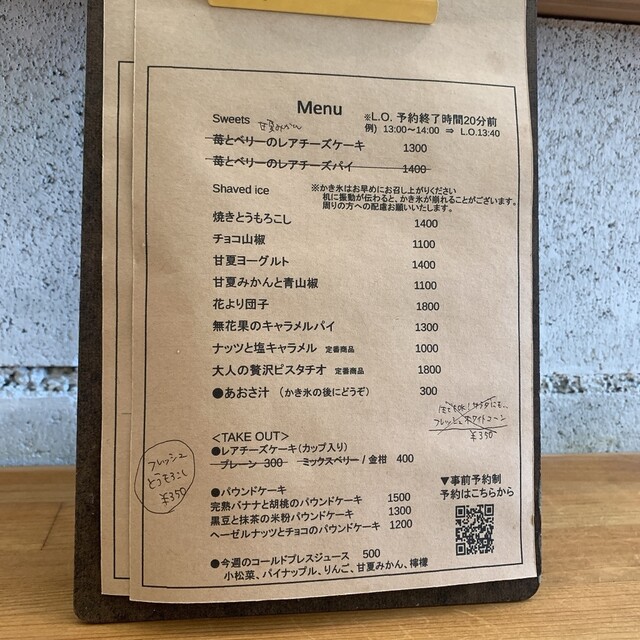 Menu
Sweets
甘夏みかん
※L.O. 予約終了時間20分前
例) 13:00~14:00 ⇒ L.O.13:40
苺とベリーのレアチーズケーキ 1300
苺とベリーのレアチーズパイ 1400
Shaved ice
※かき氷はお早めにお召し上がりください
机に振動が伝わると、かき氷が崩れることがございます。
周りの方への配慮お願いいたします。
焼きとうもろこし 1400
チョコ山椒 1100
甘夏ヨーグルト 1400
甘夏みかんと青山椒 1100
花より団子 1800
無花果のキャラメルパイ 1300
ナッツと塩キャラメル 定番商品 1000
大人の贅沢ピスタチオ 定番商品 1800
●あおさ汁 (かき氷の後にどうぞ) 300
フレッシュホワイトコーン
¥350
<TAKE OUT>
●レアチーズケーキ(カップ入り)
プレーン 300 ミックスベリー / 金柑 400
フレッシュ
とうもろこし
¥350
●パウンドケーキ
完熟バナナと胡桃のパウンドケーキ 1500
黒豆と抹茶の米粉パウンドケーキ 1300
ヘーゼルナッツとチョコのパウンドケーキ 1200
▼事前予約制
予約はこちらから
●今週のコールドプレスジュース 500
小松菜、パイナップル、りんご、甘夏みかん、檸檬